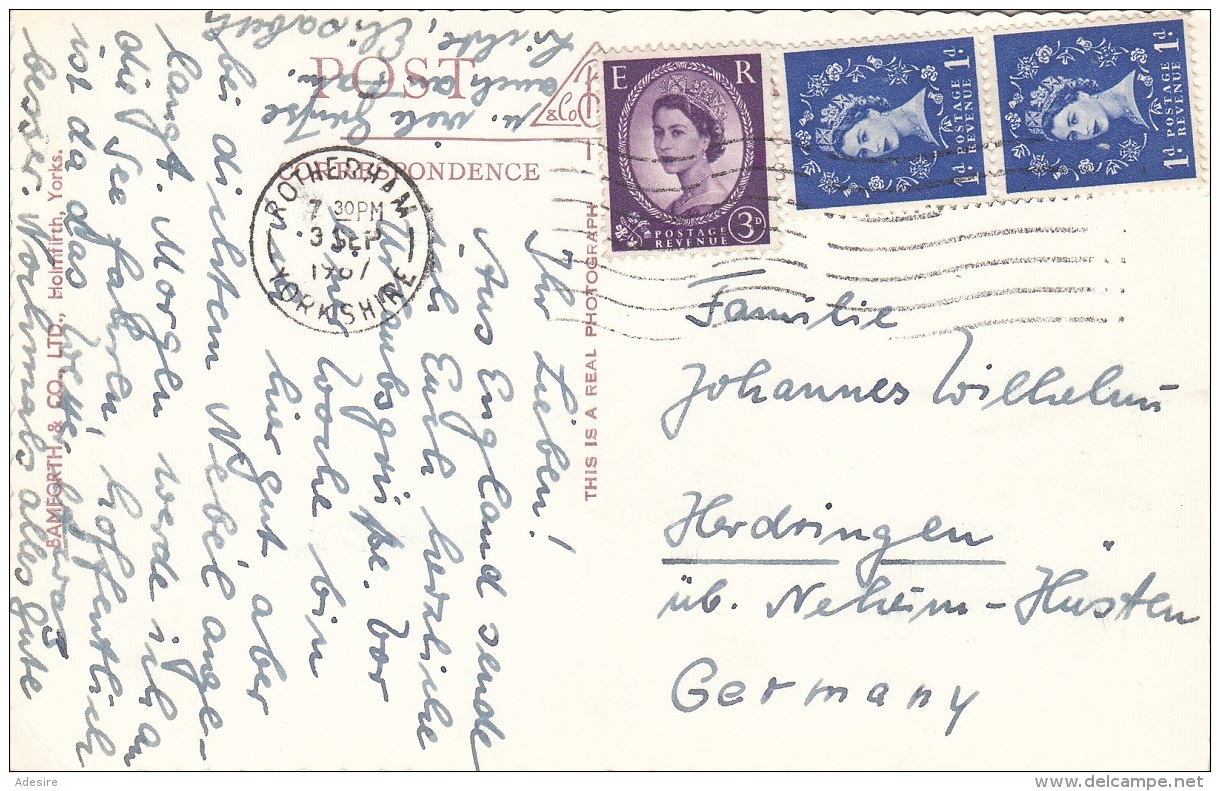 POST CARD
CORRESPONDENCE
Ihr Lieben!
Aus England sende
ich Euch herzliche
Urlaubsgrüße. Vor
Woche bin
hier gut aber
bei dichtem Nebel ange-
langt. Morgen werde ich an
die See fahren, hoffentlich
ist da das Wetter etwas
besser. Nochmals alles Gute
u. viele Grüße
auch an
Elisabeth
THIS IS A REAL PHOTOGRAPH
BAMFORTH & CO., LTD., Holmfirth, Yorks.
& Co
ROTHERHAM
7 30PM
3 SEP
1967
YORKSHIRE
E R
POSTAGE
REVENUE
3D
1d POSTAGE 1d
REVENUE
1d POSTAGE 1d
REVENUE
Familie
Johannes Wilhelm
Herdringen
üb. Neheim-Hüsten
Germany
Adesire
www.delcampe.net